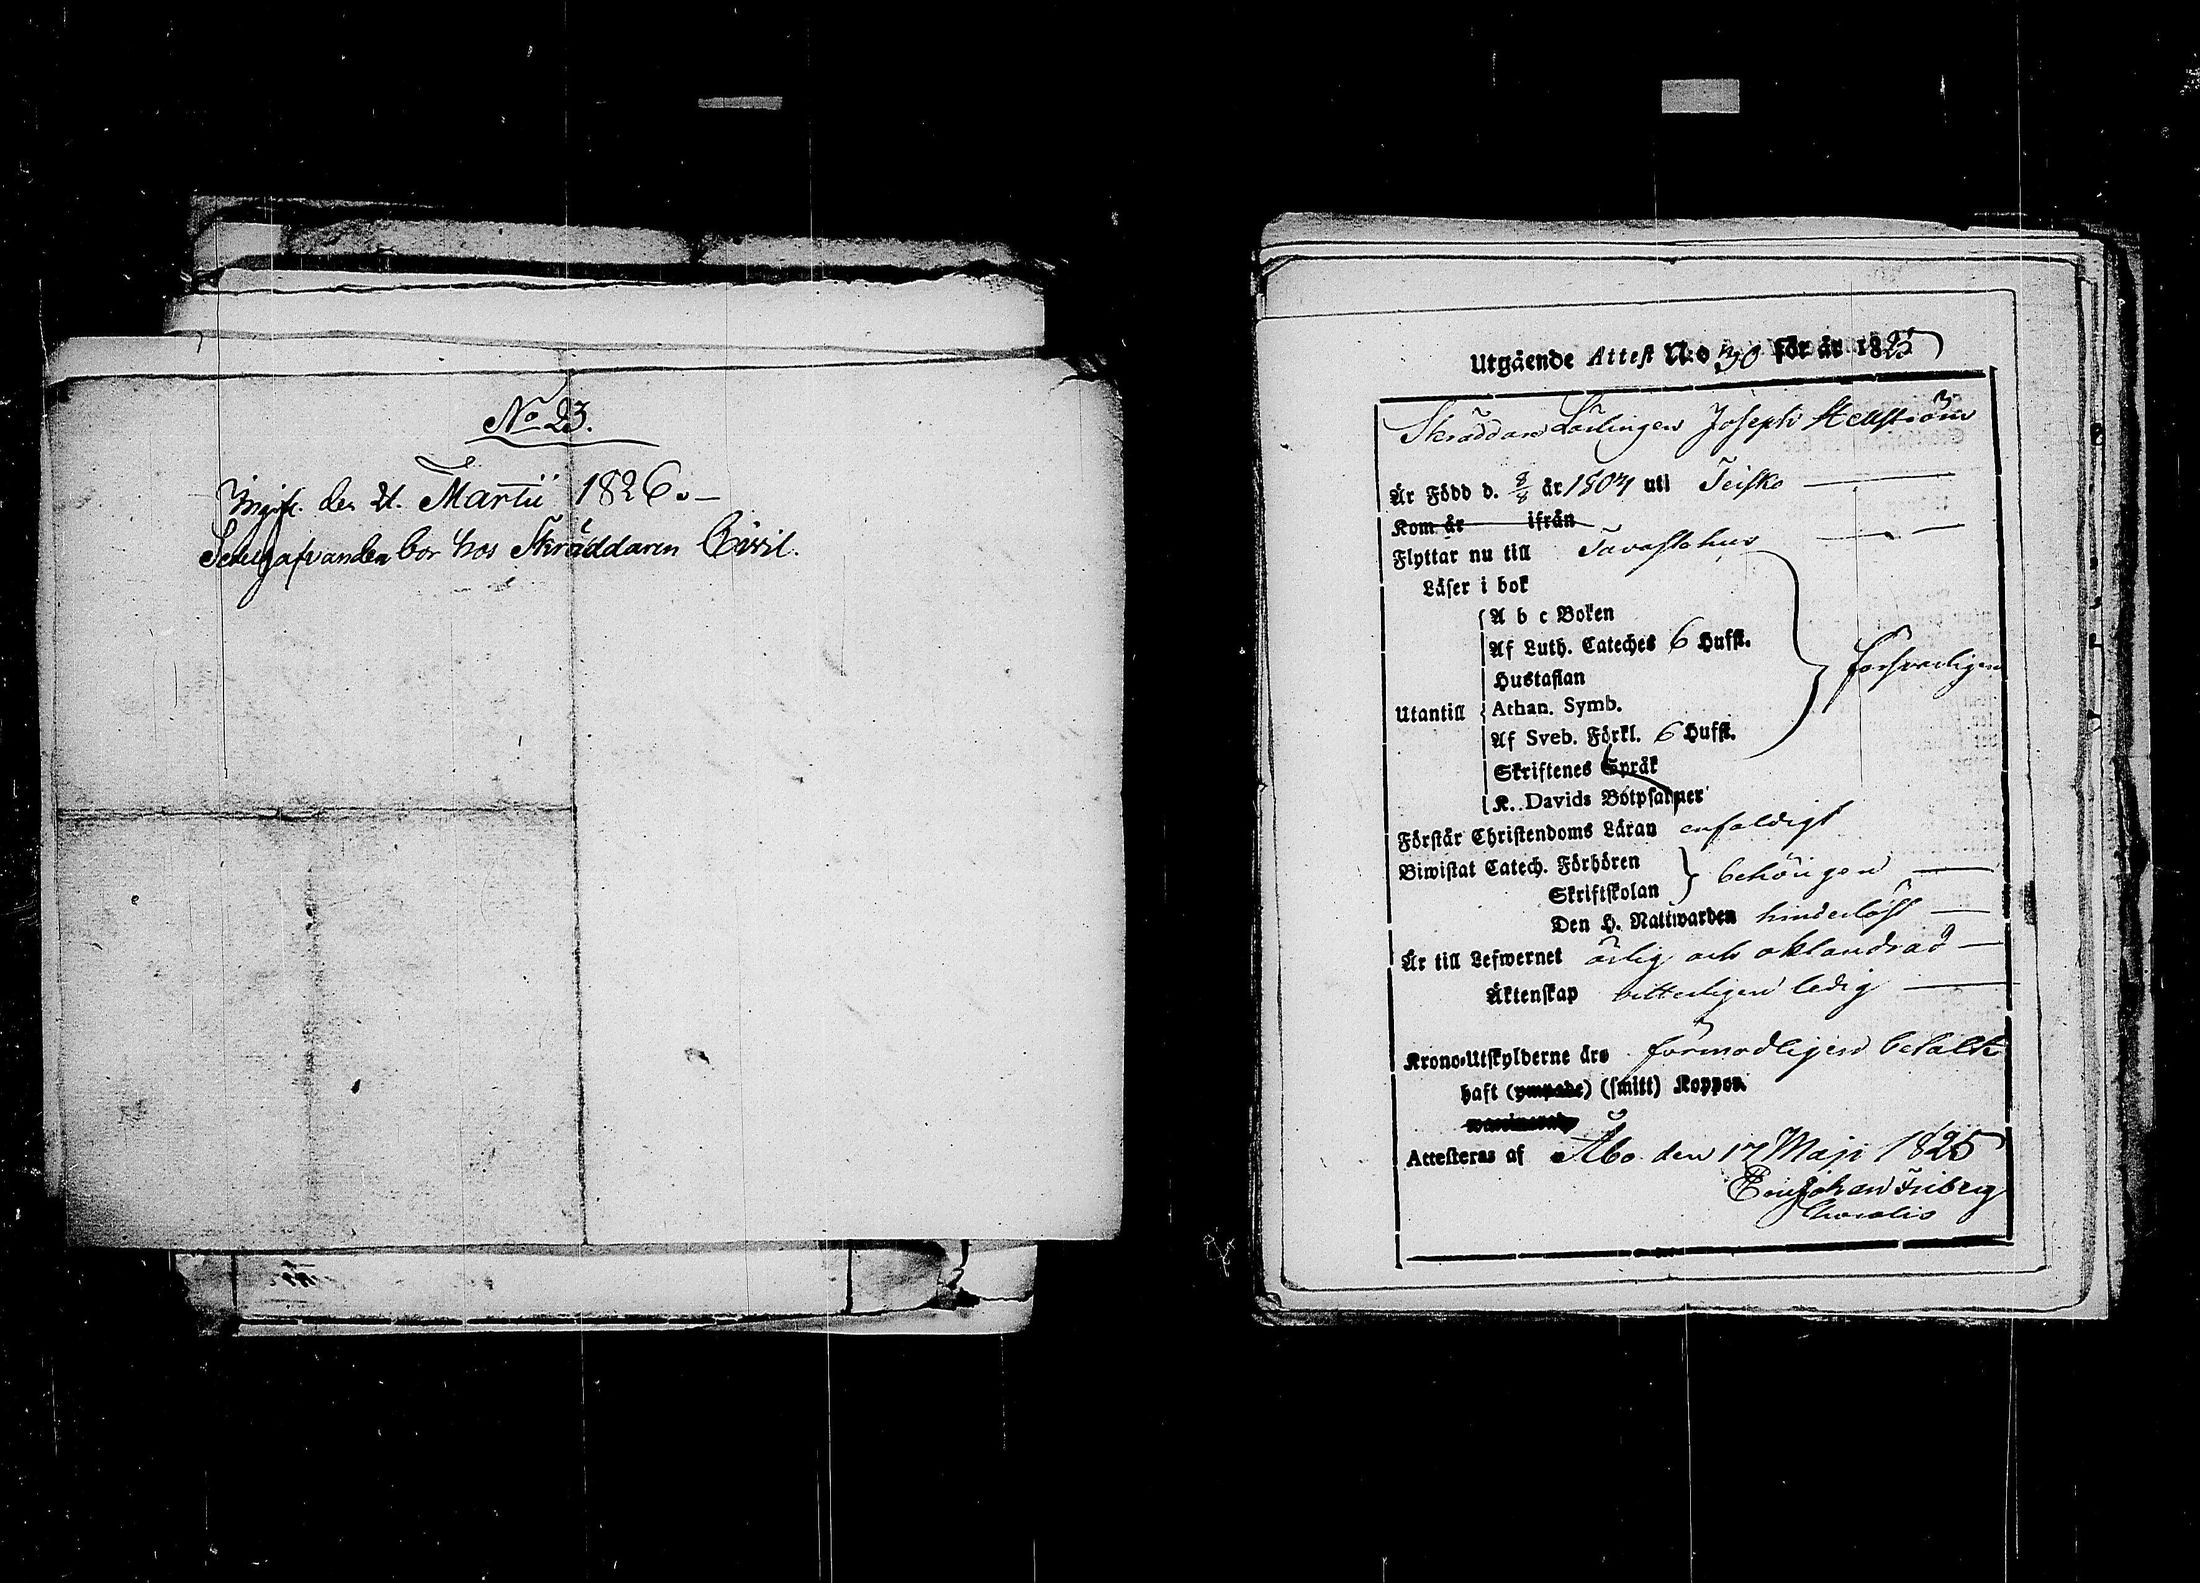 No 23.
Ingifv. den 21. Martii 1826.
Sedelgifvanden bor hos Skräddaren Qvist.
Utgående Attest N:o 30 för år 1825
Skräddare Lärlingen Joseph Hellström
Är Född d. 8/8 år 1804 uti Teisko
Kom år ifrån
Flyttar nu till Tavastehus
Läser i bok
A b c Boken
Af Luth. Cateches 6 Hufst.
Hustaflan
försvarligen
Utantill Athan. Symb.
Af Sveb. Förkl. 6 Hufst.
Skriftenes Språk
K. Davids Botpsalmer
Förstår Christendoms Läran enfaldigt
Biwistat Catech. Förhören
behörigen
Skriftskolan
Den H. Nattwarden hinderlöst
Är till Lefwernet ärlig och oklandrad
Äktenskap vitterligen ledig
Krono-Utskylderne äro förmodligen betalte
haft (ympade) (smitt) Koppor.
waccinerad
Attesteras af Åbo den 17 Maji 1825
Johan Friberg